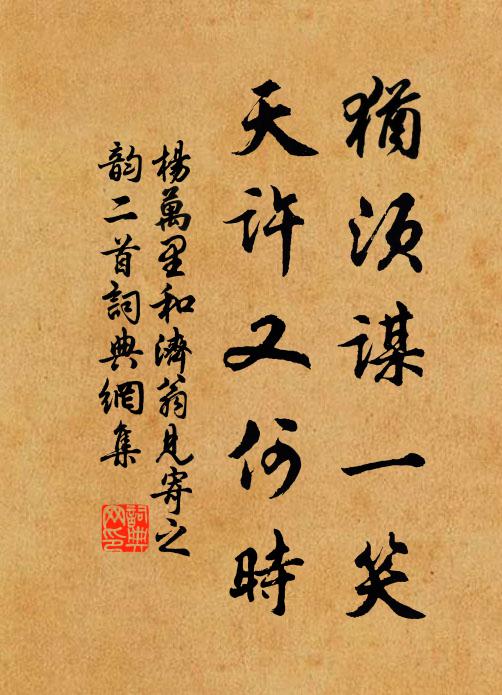 猶須謀一笑
天許又何時
楊萬里和濟翁見寄之
韵二首詞典網集
詞典網印